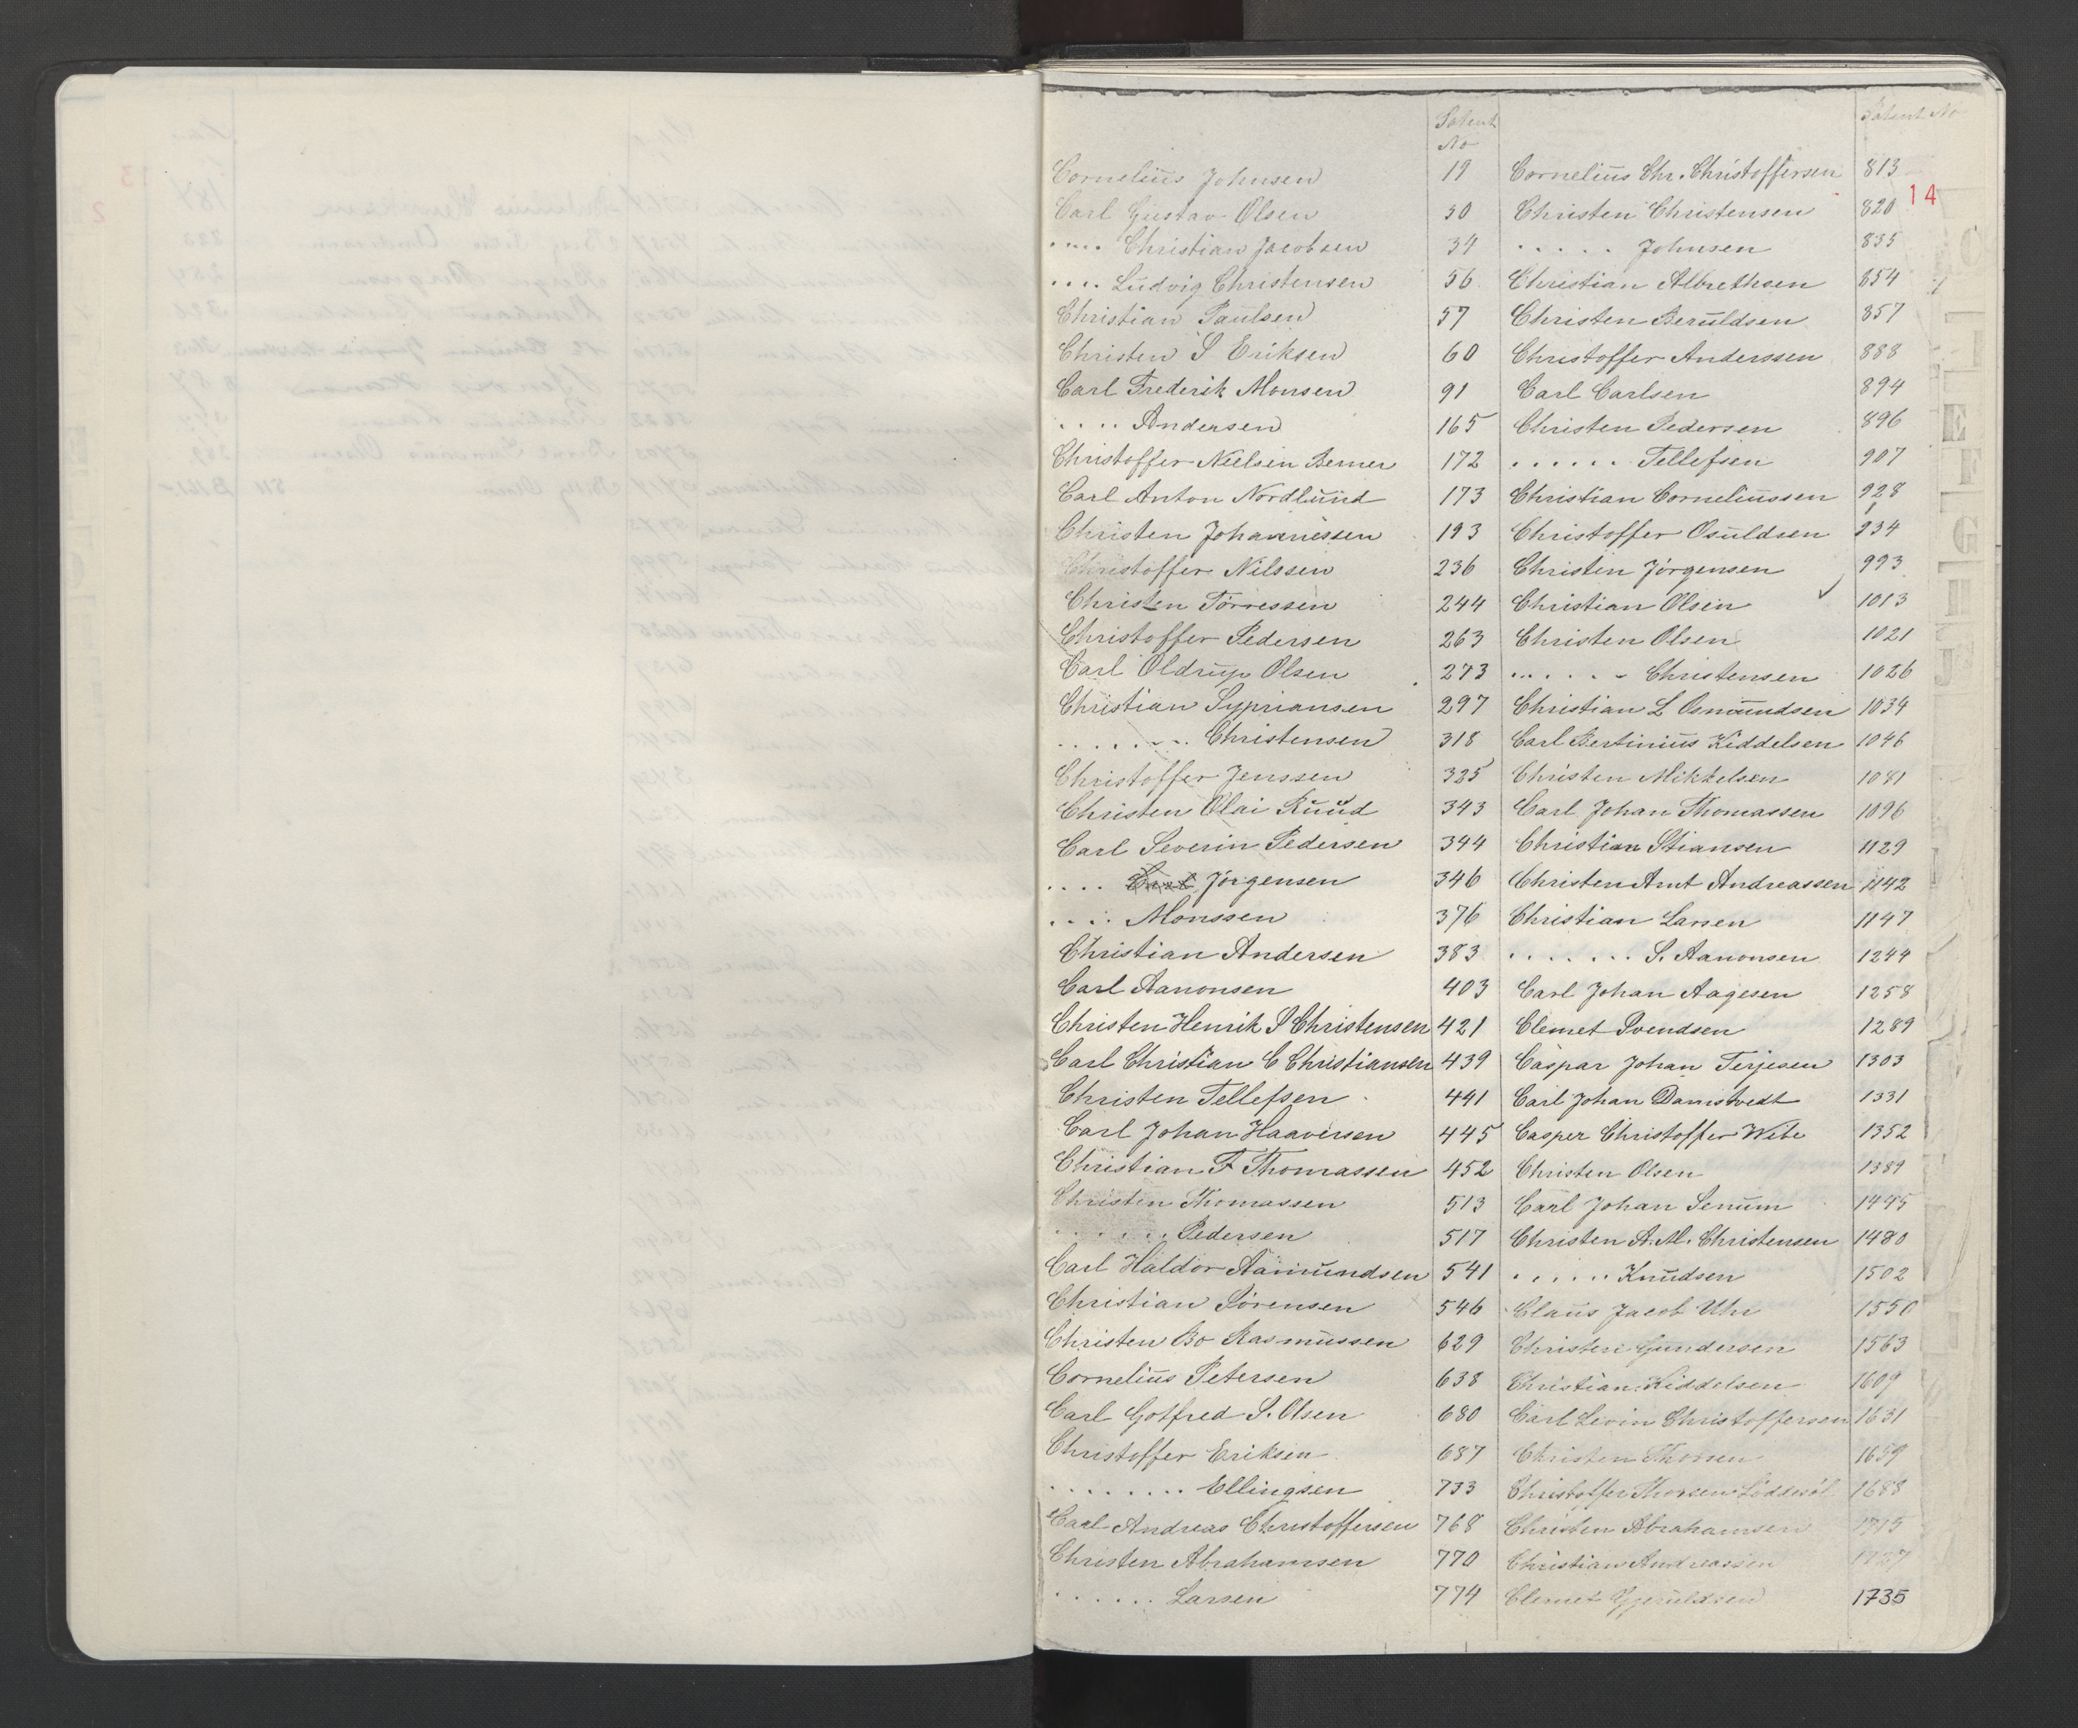 Patent No
Cornelius Johnsen 19
Carl Gustav Olsen 30
.... Christian Jacobsen 34
.... Ludvig Christensen 56
Christian Paulsen 57
Christen P Eriksen 60
Carl Frederik Monsen 91
.... Andersen 165
Christoffer Nielsen Berner 172
Carl Anton Nordlund 173
Christen Johannessen 193
Christoffer Nilssen 236
Christen Torressen 244
Christoffer Pedersen 263
Carl Oldrup Olsen 273
Christian Sypriansen 297
....... Christensen 318
Christoffer Jenssen 325
Christen Olai Ruud 343
Carl Severin Pedersen 344
.... Jörgensen 346
.... Monssen 376
Christian Andersen 383
Carl Aanonsen 403
Christen Henrik P Christensen 421
Carl Christian C Christiansen 439
Christen Tellefsen 441
Carl Johan Haaversen 445
Christian F Thomassen 452
Christen Thomassen 513
...... Pedersen 517
Carl Haldor Aamundsen 541
Christian Sörensen 546
Christen Bo Rasmussen 629
Cornelius Petersen 638
Carl Gotfred S. Olsen 680
Christoffer Eriksen 687
........ Ellingsen 733
Carl Andreas Christoffersen 768
Christen Abrahamsen 770
...... Larsen 774
Patent No
14
Cornelius Chr. Christoffersen 813
Christen Christensen 820
..... Johnsen 835
Christian Albrethsen 854
Christen Beruldsen 857
Christoffer Anderssen 888
Carl Carlsen 894
Christen Pedersen 896
...... Tellefsen 907
Christian Corneliussen 928
Christoffer Osuldsen 934
Christen Jörgensen 993
Christian Olsen 1013
Christen Olsen 1021
...... Christensen 1026
Christian L Osmundsen 1034
Carl Bertinius Kiddelsen 1046
Christen Mikkelsen 1081
Carl Johan Thomassen 1096
Christian Stiansen 1129
Christen Arnt Andreassen 1142
Christian Larsen 1147
....... S. Aanonsen 1244
Carl Johan Aagesen 1258
Clemet Svendsen 1289
Caspar Johan Terjesen 1303
Carl Johan Damstvedt 1331
Casper Christoffer Wibe 1352
Christen Olsen 1389
Carl Johan Senum 1445
Christen A. M. Christensen 1480
..... Knudsen 1502
Claus Jacob Uhr 1550
Christen Gundersen 1563
Christian Kiddelsen 1609
Carl Levin Christoffersen 1631
Christen Thorsen 1659
Christoffer Thorsen Löddesöl 1688
Christen Abrahamsen 1715
Christian Andreassen 1727
Clemet Gjeruldsen 1735